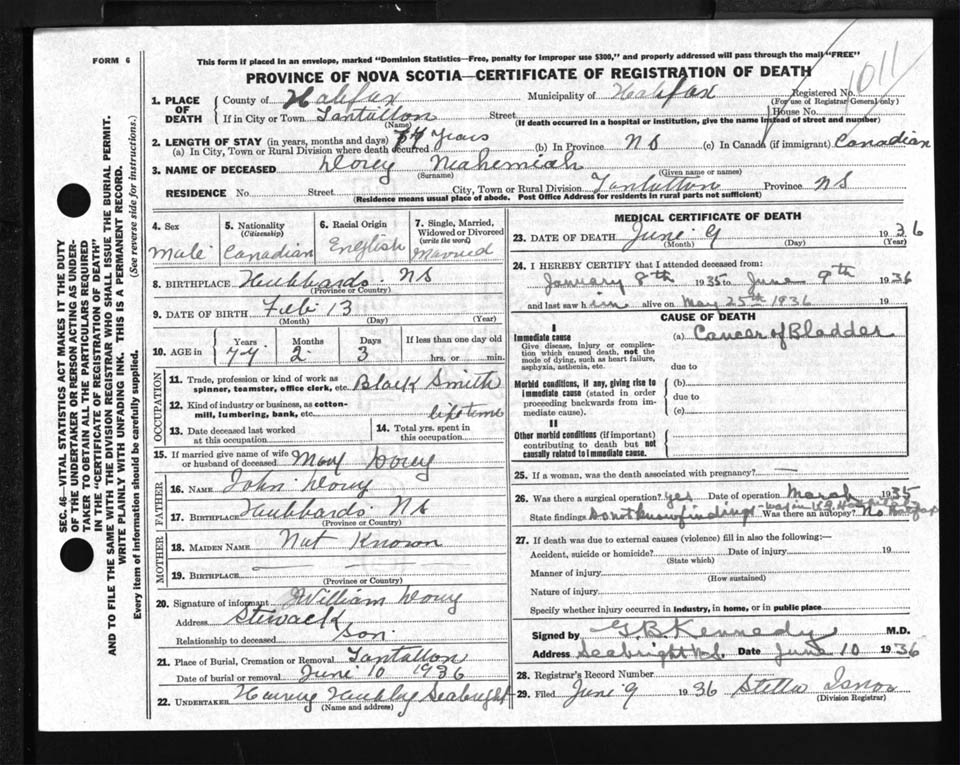 FORM 6
This form if placed in an envelope, marked "Dominion Statistics—Free, penalty for improper use $300," and properly addressed will pass through the mail "FREE"
PROVINCE OF NOVA SCOTIA—CERTIFICATE OF REGISTRATION OF DEATH
1011
Registered No.
(For use of Registrar General only)
1. PLACE OF DEATH
County of Halifax Municipality of Halifax
If in City or Town Tantallon Street House No.
(Name) (If death occurred in a hospital or institution, give the name instead of street and number)
2. LENGTH OF STAY (in years, months and days) 74 years
(a) In City, Town or Rural Division where death occurred (b) In Province NS (c) In Canada (if immigrant) Canadian
3. NAME OF DECEASED Dorey Nehemiah
(Surname) (Given name or names)
RESIDENCE No. Street City, Town or Rural Division Tantallon Province NS
(Residence means usual place of abode. Post Office Address for residents in rural parts not sufficient)
4. Sex
Male
5. Nationality
(Citizenship)
Canadian
6. Racial Origin
English
7. Single, Married, Widowed or Divorced
(write the word)
Married
8. BIRTHPLACE Hubbards NS
(Province or Country)
9. DATE OF BIRTH Feb 13
(Month) (Day) (Year)
10. AGE in Years Months Days If less than one day old
74 2 3 hrs. or min.
OCCUPATION
11. Trade, profession or kind of work as spinner, teamster, office clerk, etc. Black Smith
12. Kind of industry or business, as cotton-mill, lumbering, bank, etc.
13. Date deceased last worked at this occupation
14. Total yrs. spent in this occupation
lifetime
15. If married give name of wife or husband of deceased Mary Dorey
FATHER
16. NAME John Dorey
17. BIRTHPLACE Hubbards NS
(Province or Country)
MOTHER
18. MAIDEN NAME Not Known
19. BIRTHPLACE
(Province or Country)
20. Signature of informant William Dorey
Address
Relationship to deceased Son
21. Place of Burial, Cremation or Removal Tantallon
Date of burial or removal June 10 1936
22. UNDERTAKER Hubley Seabright
(Name and address)
MEDICAL CERTIFICATE OF DEATH
23. DATE OF DEATH June 9 1936
(Month) (Day) (Year)
24. I HEREBY CERTIFY that I attended deceased from:
January 8th 1935 to June 9th 1936
and last saw him alive on May 25th 1936 19
CAUSE OF DEATH
I
Immediate cause
Give disease, injury or complication which caused death, not the mode of dying, such as heart failure, asphyxia, asthenia, etc.
(a) Cancer of Bladder
due to
Morbid conditions, if any, giving rise to immediate cause (stated in order proceeding backwards from immediate cause).
(b)
due to
(c)
II
Other morbid conditions (if important) contributing to death but not causally related to immediate cause.
25. If a woman, was the death associated with pregnancy? —
26. Was there a surgical operation? yes Date of operation March 1935
State findings Do not know findings - was in V.G. Hospital Halifax Was there an autopsy? No
27. If death was due to external causes (violence) fill in also the following:—
Accident, suicide or homicide? Date of injury 19
(State which)
Manner of injury
(How sustained)
Nature of injury
Specify whether injury occurred in industry, in home, or in public place
Signed by G.B. Kennedy M.D.
Address Seabright N.S. Date June 10 1936
28. Registrar's Record Number
29. Filed June 9 1936 Stella Isnor
(Division Registrar)
SEC. 46—VITAL STATISTICS ACT MAKES IT THE DUTY
OF THE UNDERTAKER OR PERSON ACTING AS UNDER-
TAKER TO OBTAIN ALL THE PARTICULARS REQUIRED
IN THE "CERTIFICATE OF REGISTRATION OF DEATH"
AND TO FILE THE SAME WITH THE DIVISION REGISTRAR WHO SHALL ISSUE THE BURIAL PERMIT.
WRITE PLAINLY WITH UNFADING INK. THIS IS A PERMANENT RECORD.
Every item of information should be carefully supplied. (See reverse side for instructions.)